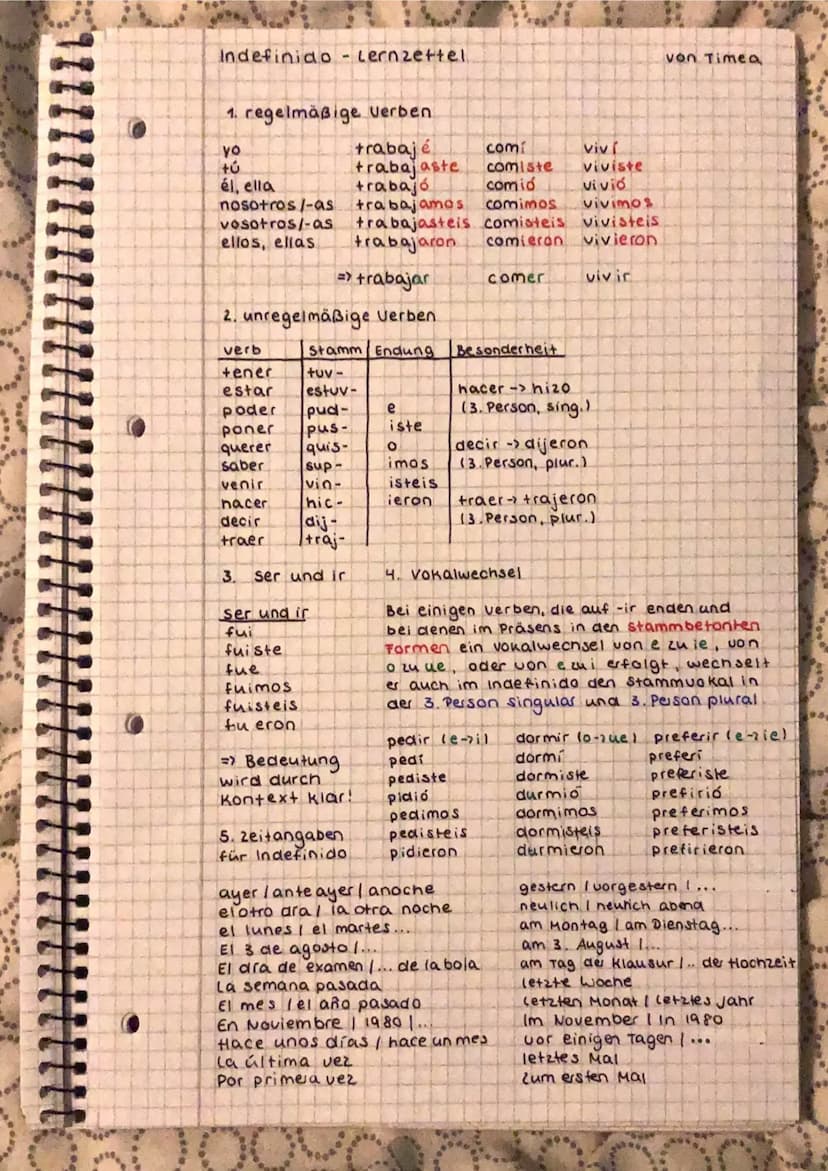 Indefinido - Lernzettel von Timea
1. regelmäßige Verben
yo trabajé comí viví
tú trabajaste comiste viviste
él, ella trabajó comió vivió
nosotros/-as trabajamos comimos vivimos
vosotros/-as trabajasteis comisteis vivisteis
ellos, ellas trabajaron comieron vivieron
=> trabajar comer vivir
2. unregelmäßige Verben
Verb Stamm Endung Besonderheit
tener tuv-
estar estuv- hacer -> hizo
poder pud- e (3. Person, sing.)
poner pus- iste
querer quis- o decir -> dijeron
saber sup- imos (3. Person, plur.)
venir vin- isteis
hacer hic- ieron traer -> trajeron
decir dij- (3. Person, plur.)
traer traj-
3. Ser und ir 4. Vokalwechsel
ser und ir
fui
fuiste
fue
fuimos
fuisteis
fueron
=> Bedeutung
wird durch
Kontext klar!
Bei einigen Verben, die auf -ir enden und
bei denen im Präsens in den stammbetonten
Formen ein Vokalwechsel von e zu ie, von
o zu ue, oder von e zu i erfolgt, wechselt
er auch im Indefinido den Stammvokal in
der 3. Person singular und 3. Person plural
pedir (e->i) dormir (o->ue) preferir (e->ie)
pedí dormí preferí
pediste dormiste preferiste
pidió durmió prefirió
pedimos dormimos preferimos
pedisteis dormisteis preferisteis
pidieron durmieron prefirieron
5. Zeitangaben
für Indefinido
ayer / anteayer / anoche gestern / vorgestern / ...
el otro día / la otra noche neulich / neulich abend
el lunes / el martes... am Montag / am Dienstag...
El 3 de agosto /... am 3. August /...
El día de examen /... de la boda am Tag der Klausur /.. der Hochzeit
La semana pasada letzte Woche
El mes / el año pasado Letzten Monat / Letztes Jahr
En Noviembre / 1980 /... Im November / In 1980
Hace unos días / hace un mes vor einigen Tagen / ...
La última vez letztes Mal
Por primera vez zum ersten Mal